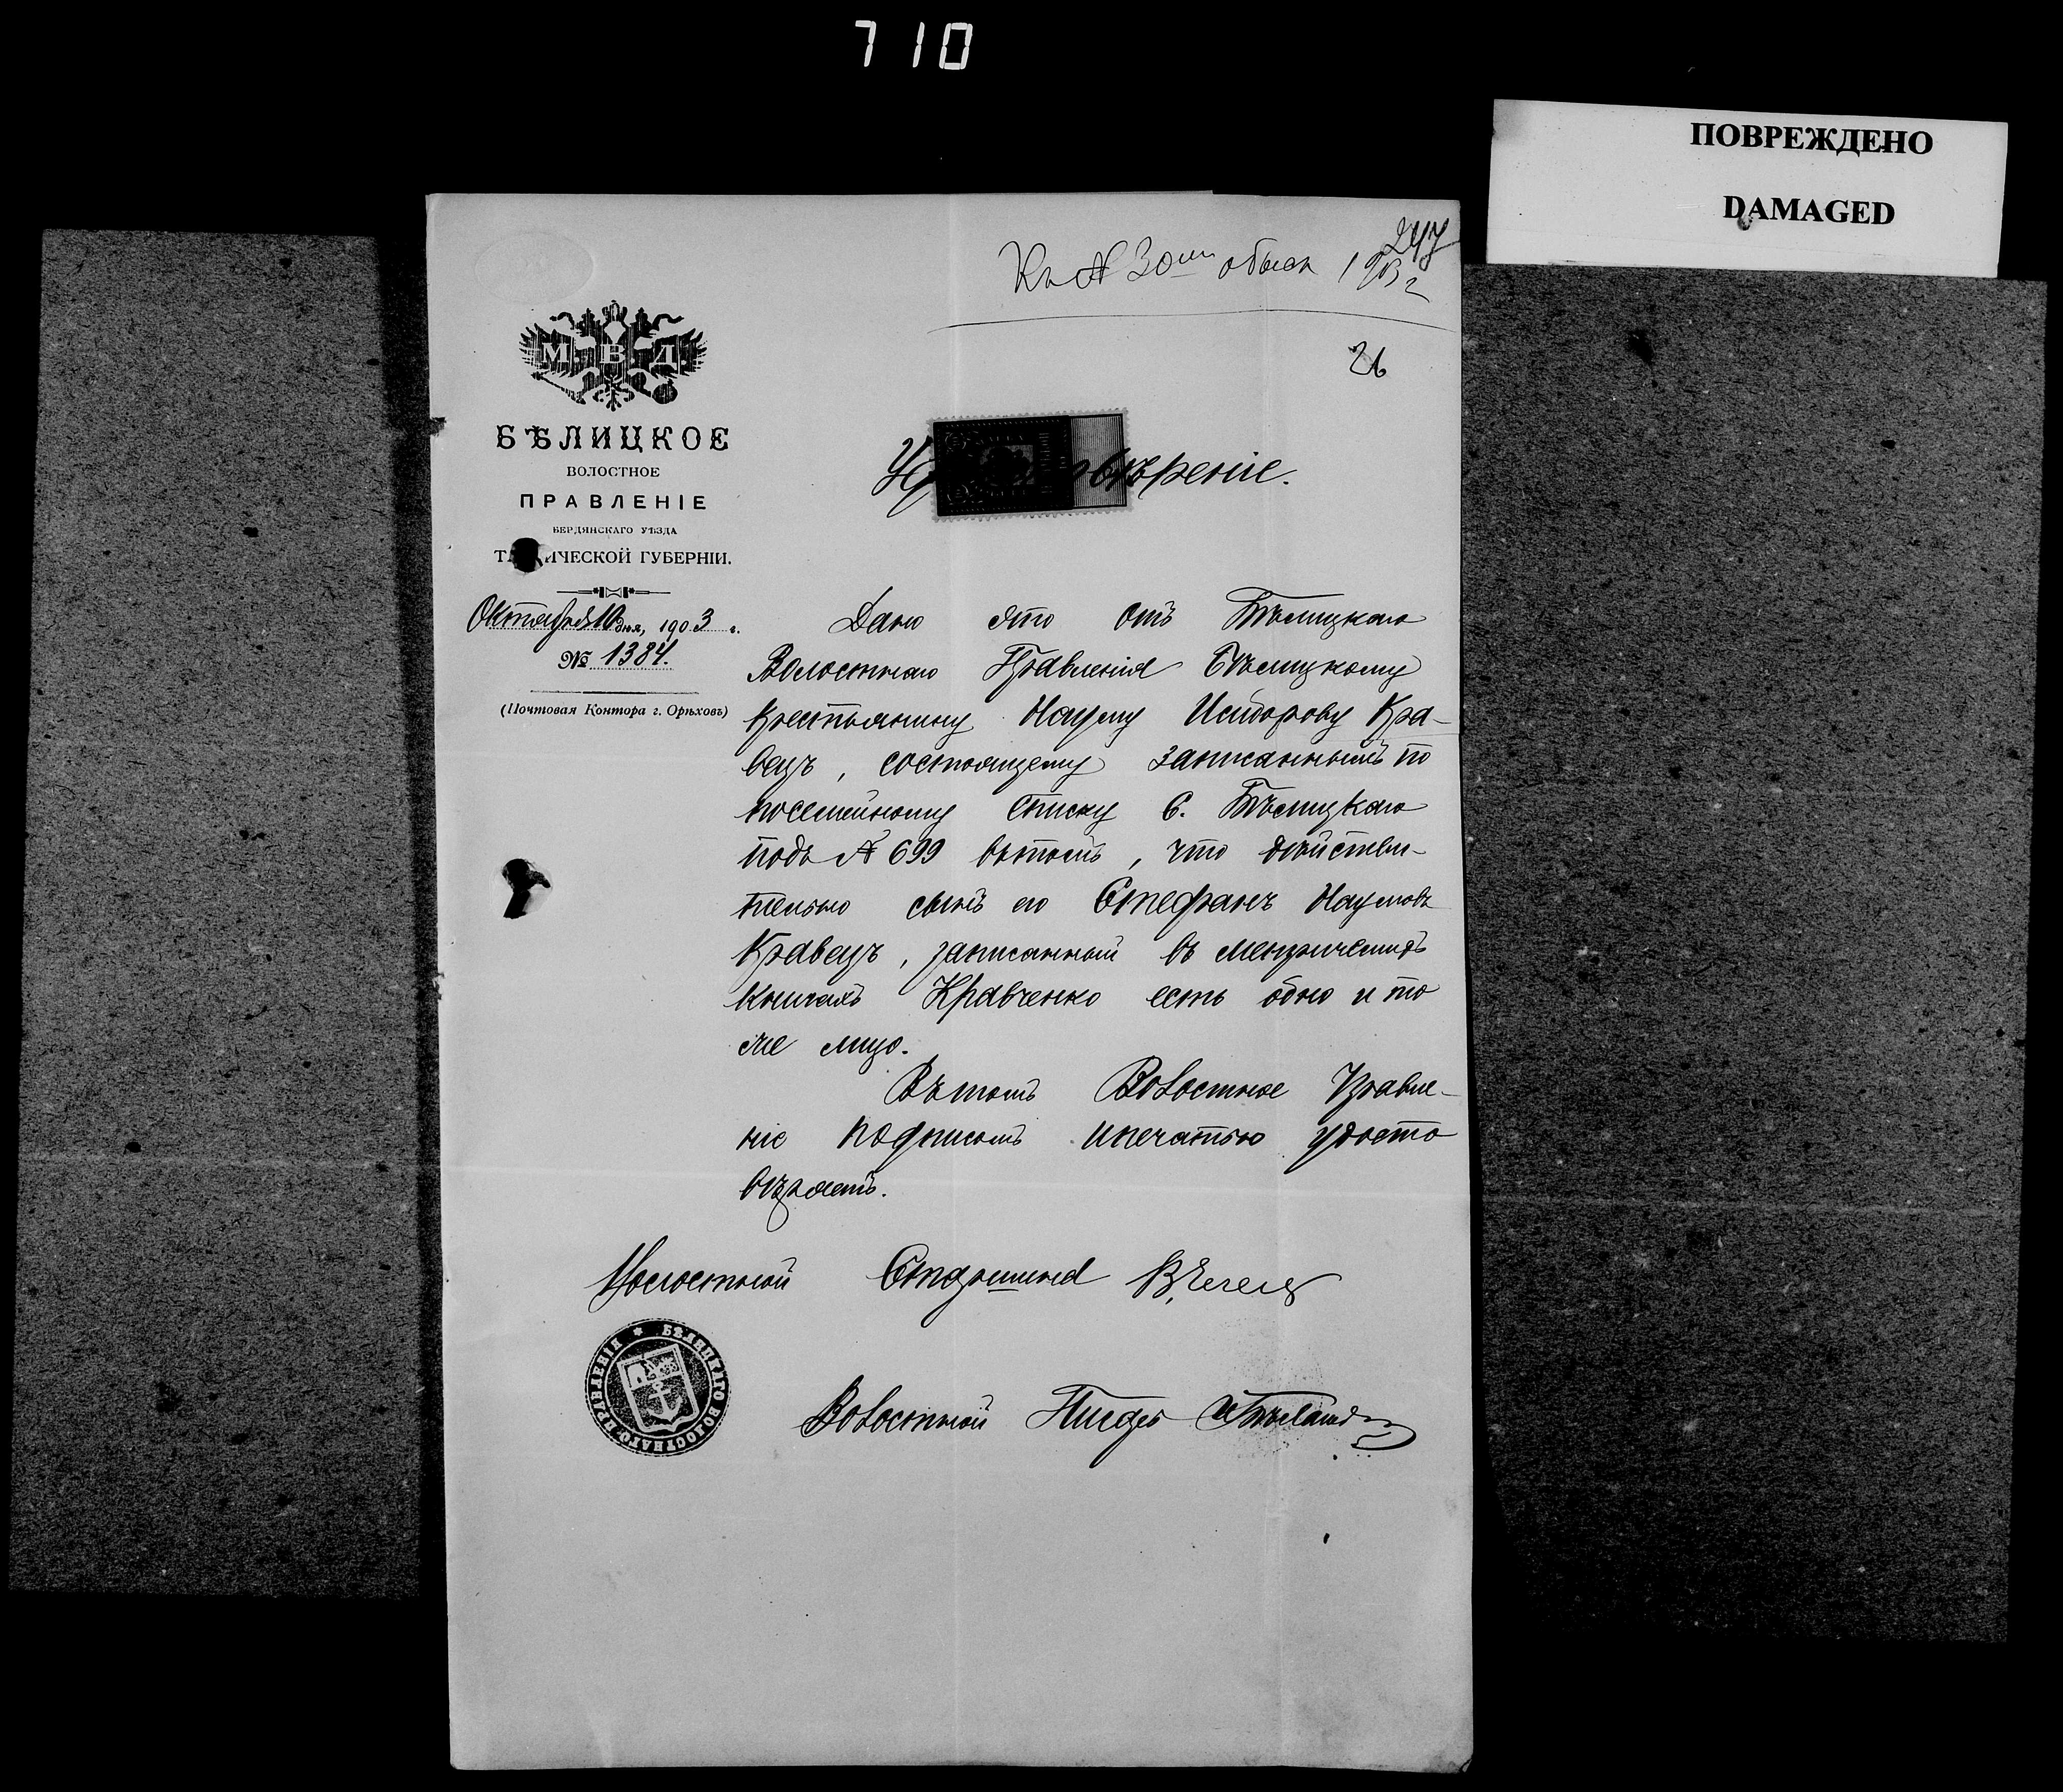 710
ПОВРЕЖДЕНО
DAMAGED
247
Къ № 30му обыск 1903 г
26
М В Д
БѢЛИЦКОЕ
ВОЛОСТНОЕ
ПРАВЛЕНІЕ
БЕРДЯНСКАГО УѢЗДА
ИЧЕСКОЙ ГУБЕРНІИ.
Октября 10 дня, 1903 г.
№ 1384.
(Почтовая Контора г. Орѣховъ)
вѣреніе.
Дано это отъ Бѣлицкаго
Волостнаго Правленія Бѣлицкому
крестьянину Науму Исидорову Кра-
вецъ, состоящему записаннымъ по
посемейному списку с. Бѣлицкаго
подъ № 699 вътомъ, что дѣйстви-
тельно сынъ его Стефанъ Наумовъ
Кравецъ, записанный въ метрическихъ
книгахъ Кравченко есть одно и то
же лицо.
Въ томъ Волостное Правле-
ніе подписомъ ипечатью удосто
вѣряетъ.
Волостной Старшина
БѢЛИЦКАГО ВОЛОСТНАГО ПРАВЛЕНІЯ
Волостной Писарь